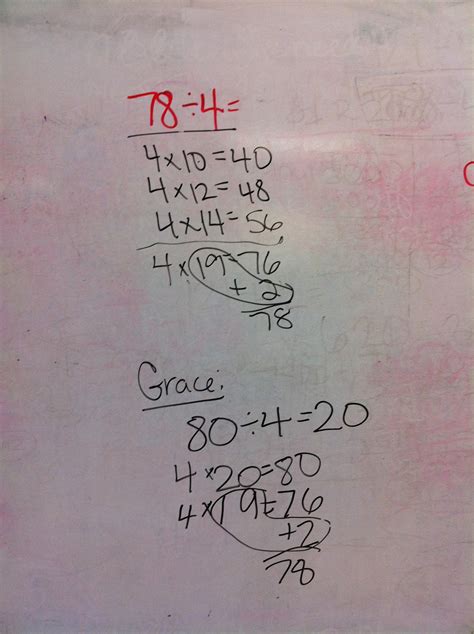 78÷4=
4×10=40
4×12=48
4×14=56
4×19=76
+ 2
78
Grace:
80÷4=20
4×20=80
4×19=76
+2
78